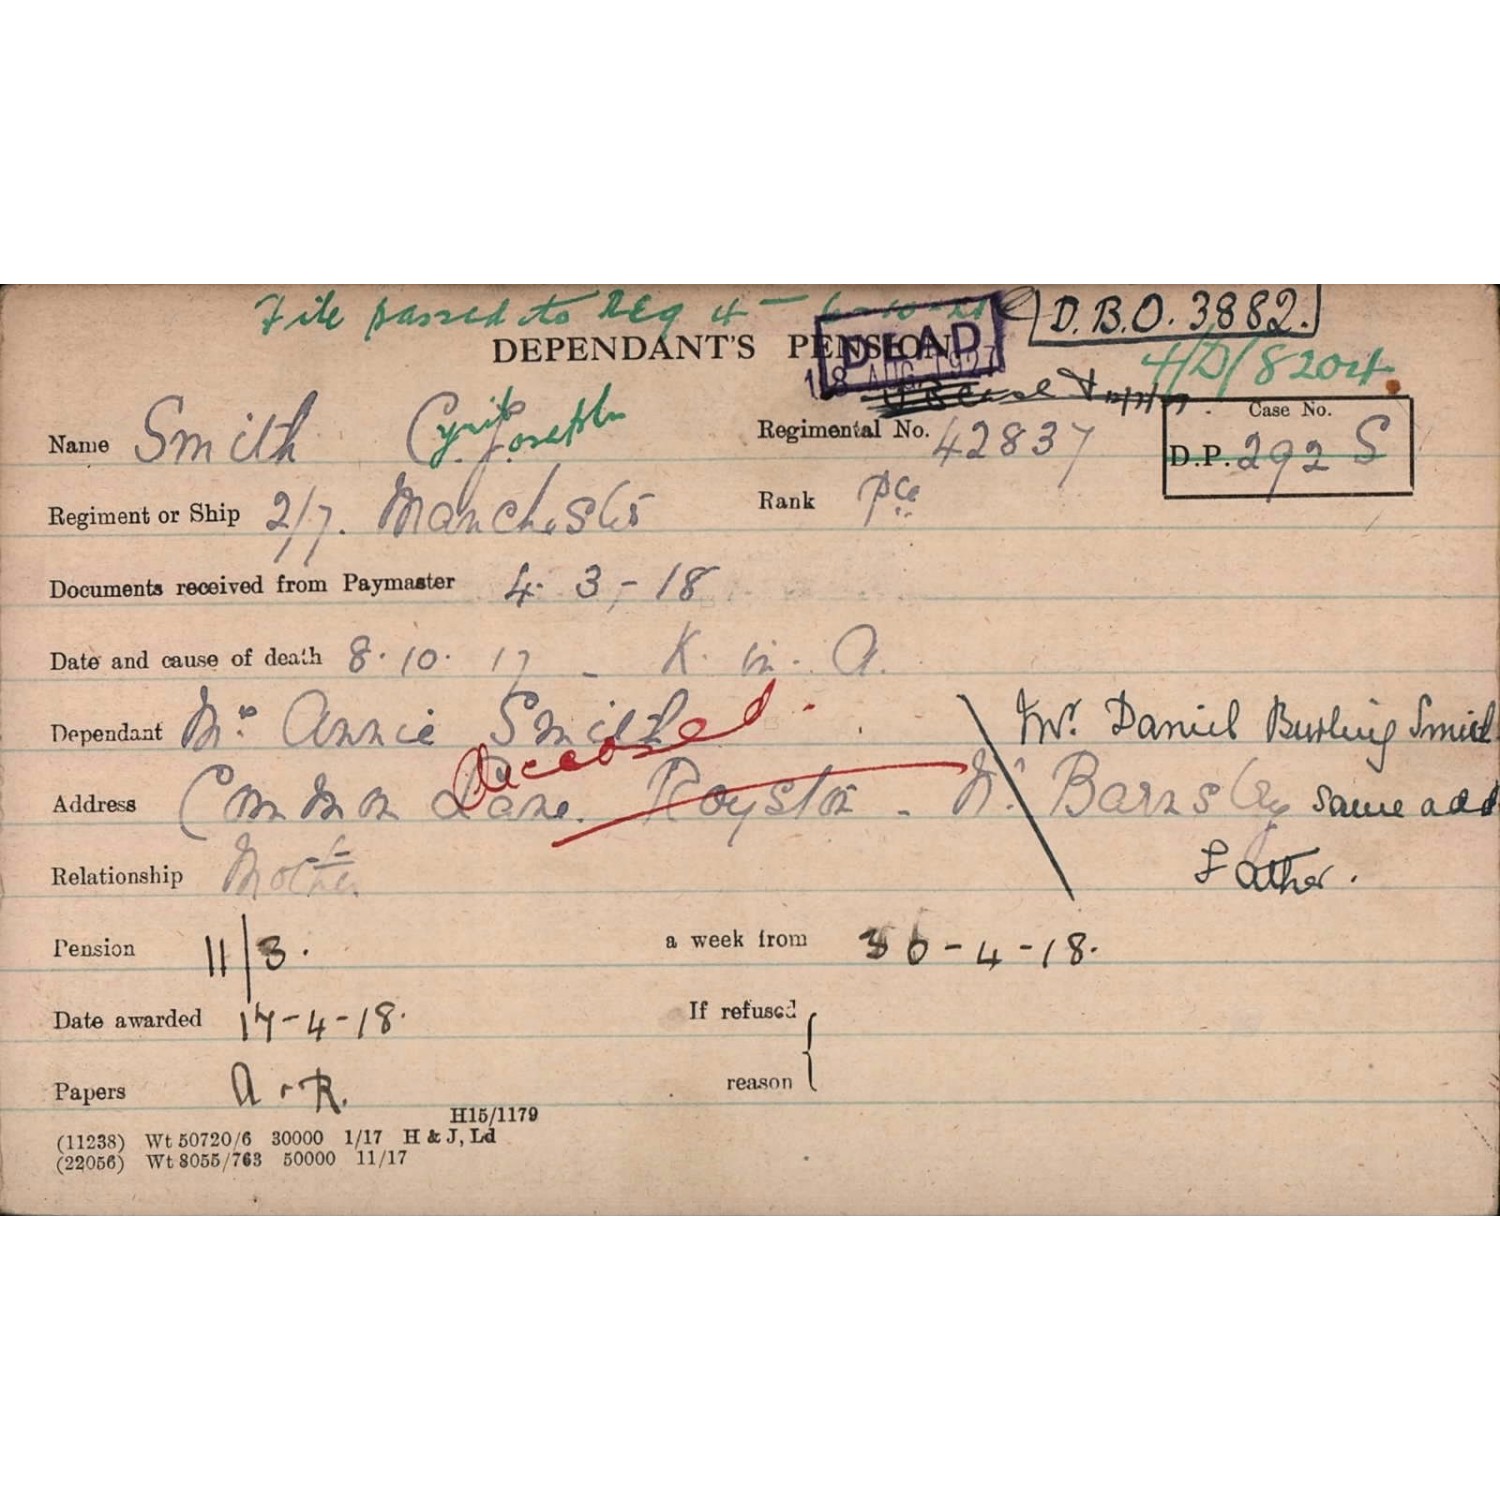 File passed to Reg 4 - 6-10-21
D.B.O. 3882.
DEPENDANT'S PENSION
DEAD
18 AUG 1927
4/D/8204
Name Smith Cyril Joseph
Regimental No. 42837
Case No.
D.P. 292 S
Regiment or Ship 2/7. Manchester
Rank Pte
Documents received from Paymaster 4-3-18
Date and cause of death 8.10.17 - K. in. A.
Dependant Mrs Annie Smith
Deceased.
Mr. Daniel Smith
Address Common Lane. Royston - Nr Barnsley
same add
Relationship Mother
Father.
Pension 11/3.
a week from 30-4-18.
Date awarded 17-4-18.
If refused
reason
Papers A & R.
H15/1179
(11238) Wt 50720/6 30000 1/17 H & J, Ld
(22056) Wt 8055/763 50000 11/17